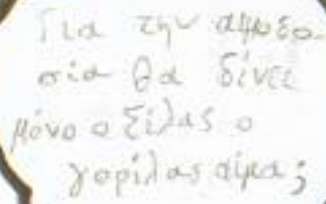 Για την αιμοδο-
σία θα δίνει
μόνο ο ξίλας ο
γορίλας αίμα;